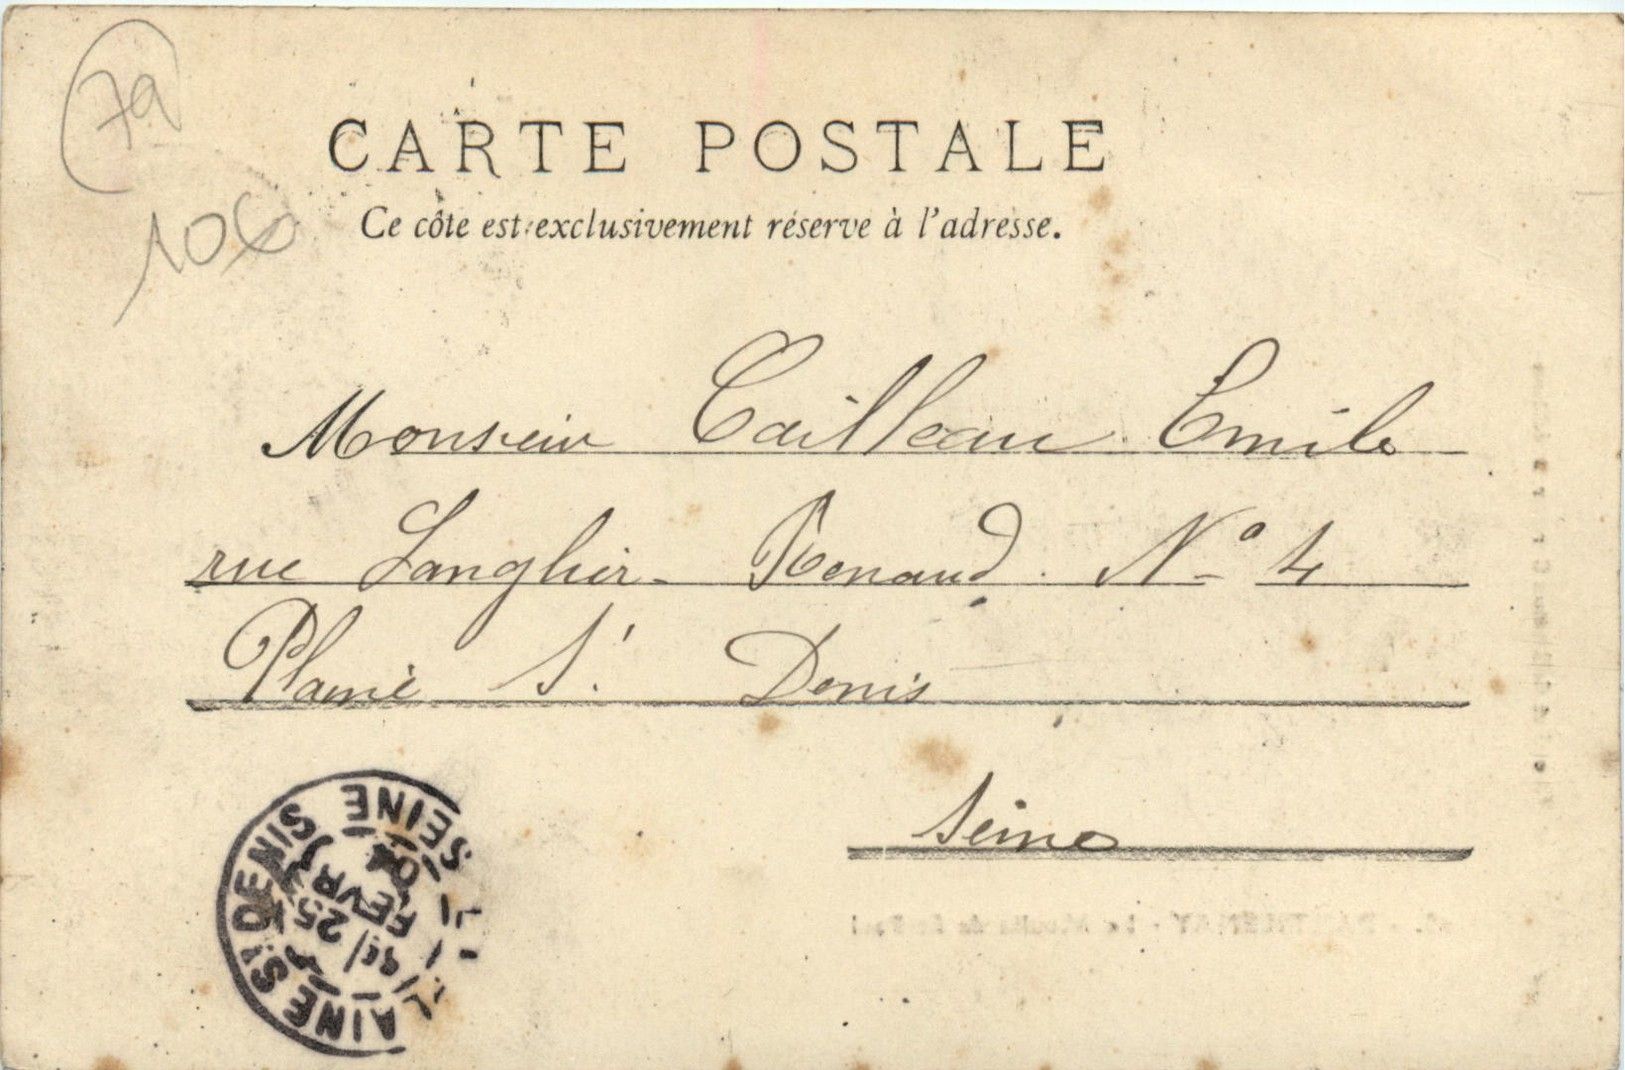 79
106
CARTE POSTALE
Ce côte est exclusivement réserve à l'adresse.
Monsieur Cailleau Emile
rue Langhier-Renaud. N° 4
Plaine St. Denis
Seine
PLAINE ST DENIS SEINE
25
FEVR
04
PARTHENAY - Le Moulin de St-Paul